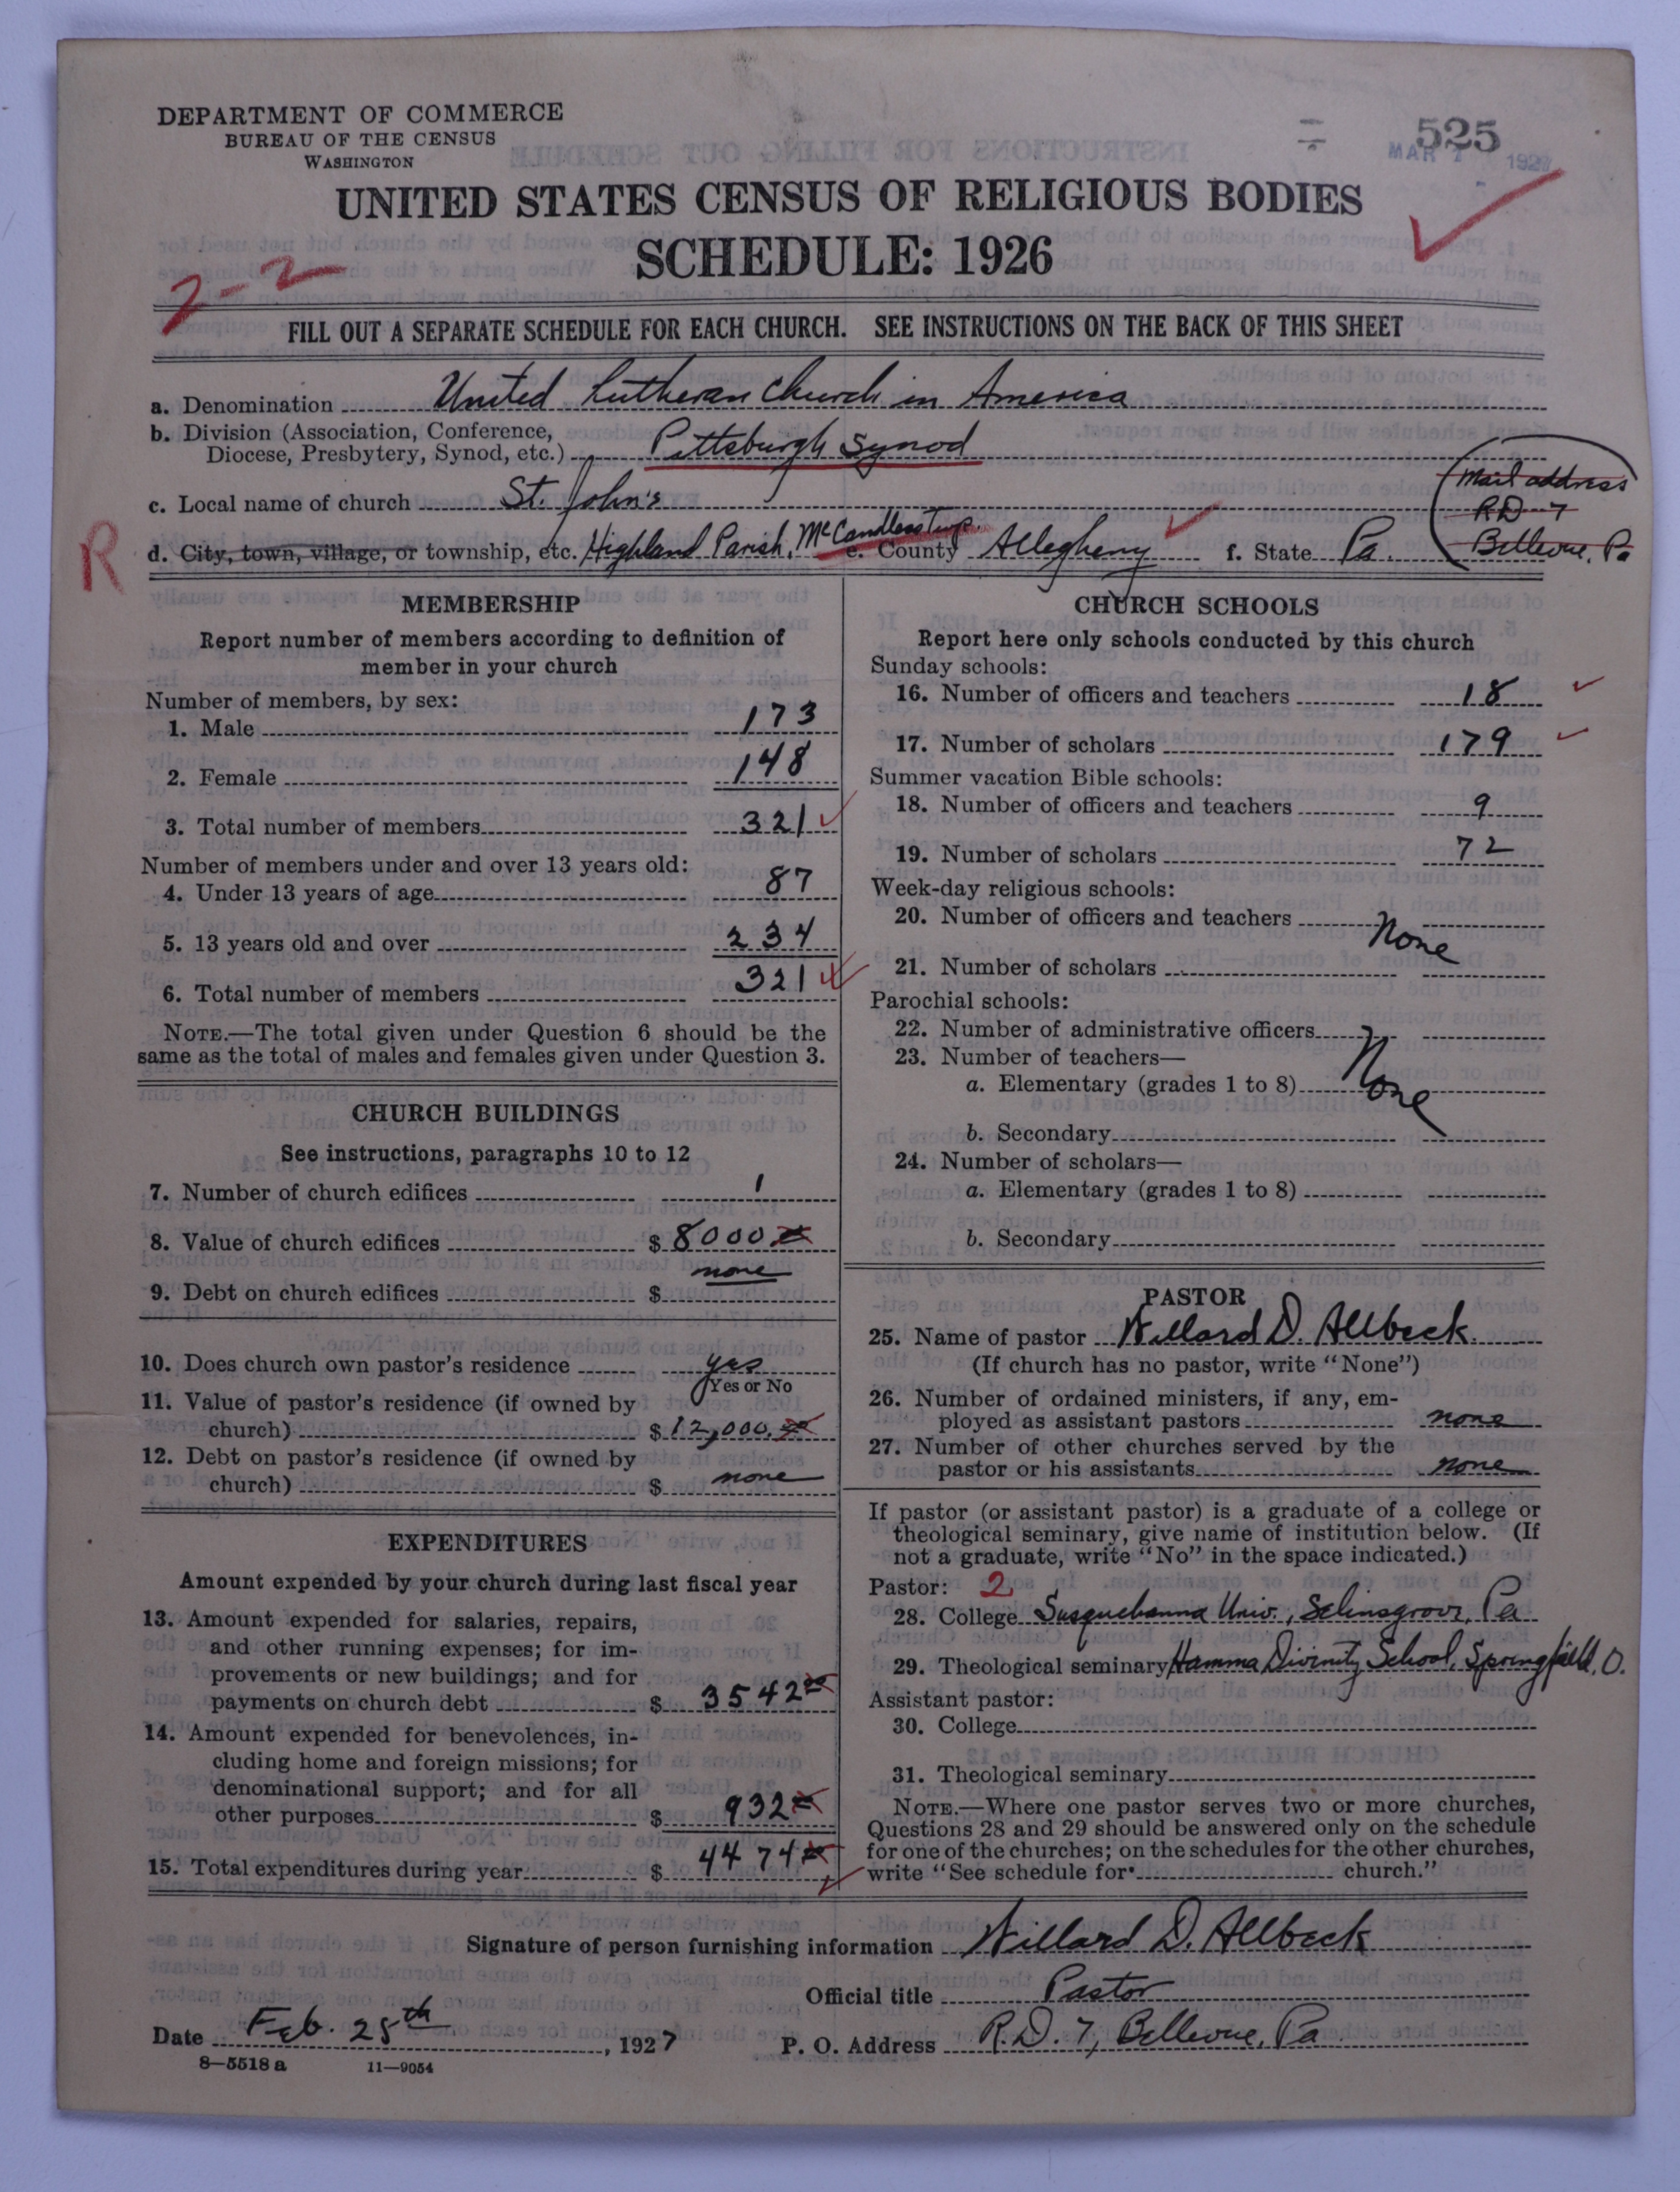 DEPARTMENT OF COMMERCE
BUREAU OF THE CENSUS
WASHINGTON
525
MAR 1 1927
UNITED STATES CENSUS OF RELIGIOUS BODIES
SCHEDULE: 1926
2-2
FILL OUT A SEPARATE SCHEDULE FOR EACH CHURCH. SEE INSTRUCTIONS ON THE BACK OF THIS SHEET
a. Denomination United Lutheran Church in America
b. Division (Association, Conference,
Diocese, Presbytery, Synod, etc.) Pittsburgh Synod
c. Local name of church St. John's
Mail address
RD 7
Bellevue, Pa
R
d. City, town, village, or township, etc. Highland Parish, McCandless Twp. e. County Allegheny f. State Pa.
MEMBERSHIP
Report number of members according to definition of
member in your church
Number of members, by sex:
1. Male 173
2. Female 148
3. Total number of members 321
Number of members under and over 13 years old:
4. Under 13 years of age 87
5. 13 years old and over 234
6. Total number of members 321
NOTE.—The total given under Question 6 should be the
same as the total of males and females given under Question 3.
CHURCH BUILDINGS
See instructions, paragraphs 10 to 12
7. Number of church edifices 1
8. Value of church edifices $ 8000
9. Debt on church edifices $ none
10. Does church own pastor's residence yes
Yes or No
11. Value of pastor's residence (if owned by
church) $ 12,000.
12. Debt on pastor's residence (if owned by
church) $ none
EXPENDITURES
Amount expended by your church during last fiscal year
13. Amount expended for salaries, repairs,
and other running expenses; for im-
provements or new buildings; and for
payments on church debt $ 3542
14. Amount expended for benevolences, in-
cluding home and foreign missions; for
denominational support; and for all
other purposes $ 932
15. Total expenditures during year $ 4474
CHURCH SCHOOLS
Report here only schools conducted by this church
Sunday schools:
16. Number of officers and teachers 18
17. Number of scholars 179
Summer vacation Bible schools:
18. Number of officers and teachers 9
19. Number of scholars 72
Week-day religious schools:
20. Number of officers and teachers None
21. Number of scholars
Parochial schools:
22. Number of administrative officers
23. Number of teachers—
a. Elementary (grades 1 to 8) None
b. Secondary
24. Number of scholars—
a. Elementary (grades 1 to 8)
b. Secondary
PASTOR
25. Name of pastor Willard D. Allbeck.
(If church has no pastor, write "None")
26. Number of ordained ministers, if any, em-
ployed as assistant pastors none
27. Number of other churches served by the
pastor or his assistants none
If pastor (or assistant pastor) is a graduate of a college or
theological seminary, give name of institution below. (If
not a graduate, write "No" in the space indicated.)
Pastor: 2
28. College Susquehanna Univ., Selinsgrove, Pa
29. Theological seminary Hamma Divinity School, Springfield, O.
Assistant pastor:
30. College
31. Theological seminary
NOTE.—Where one pastor serves two or more churches,
Questions 28 and 29 should be answered only on the schedule
for one of the churches; on the schedules for the other churches,
write "See schedule for church."
Signature of person furnishing information Willard D. Allbeck
Official title Pastor
Date Feb. 25th, 1927 P. O. Address R.D. 7, Bellevue, Pa.
8—5518 a 11—9054